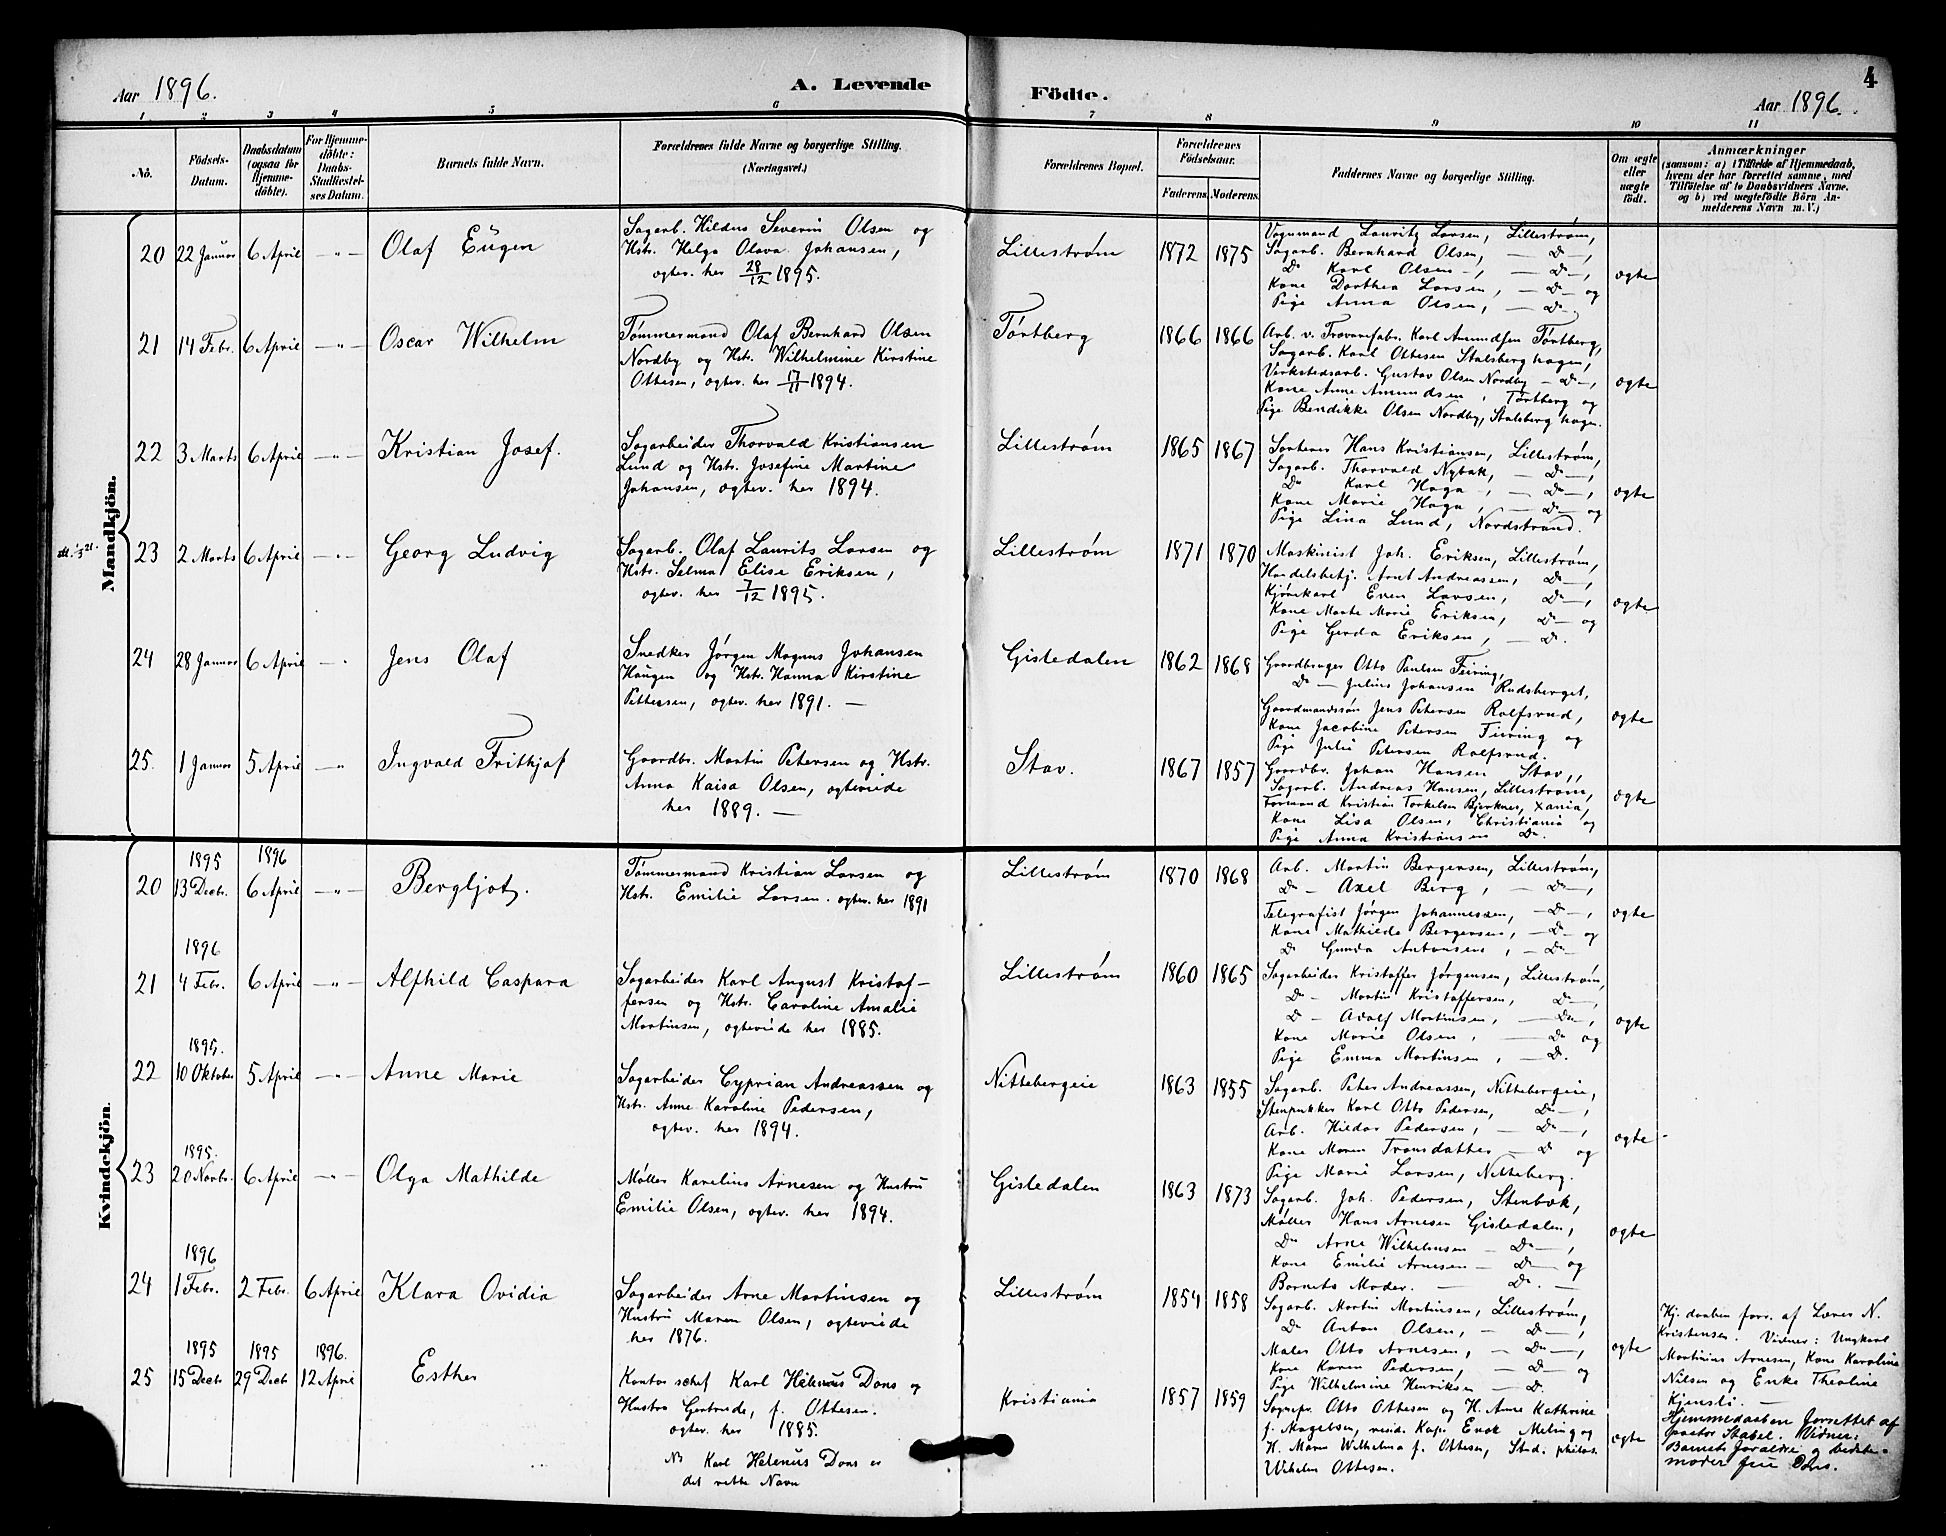 Aar 1896.
A. Levende Födte.
4
Aar 1896.
1 2 3 4 5 6 7 8 9 10 11
No.
Födsels-Datum.
Daabsdatum (ogsaa for Hjemme-döbte).
For Hjemme-döbte: Daabs-Stadfæstel-ses Datum.
Barnets fulde Navn.
Forældrenes fulde Navne og borgerlige Stilling. (Næringsvei.)
Forældrenes Bopæl.
Forældrenes Födselsaar.
Faderens. Moderens.
Faddernes Navne og borgerlige Stilling.
Om ægte eller uægte födt.
Anmærkninger
(saasom: a) i Tilfælde af Hjemmedaab, hvem der har forrettet samme, med Tilföielse af to Daabsvidners Navne. og b) ved uægtefödte Börn An-melderens Navn m. V.)
Mandkjön.
20 22 Januar 6 April — " — Olaf Eugen
Sagarb. Hildus Severin Olsen og
Hstr. Helga Olava Johansen,
ægtev. her 28/12 1895.
Lillestrøm 1872 1875
Vognmand Lauritz Larsen, Lillestrøm,
Sagarb. Bernhard Olsen, — Do —,
Do Karl Olsen —, — Do —,
Kone Dorthea Larsen, — Do — og
Pige Anna Olsen, — Do —
ægte
21 14 Febr. 6 April — " — Oscar Wilhelm
Tømmermand Olaf Bernhard Olsen
Nordby og Hstr. Wilhelmine Kirstine
Ottesen, ægtev. her 17/11 1894.
Tørtberg 1866 1866
Arb. v. Trævarefabr. Karl Amundsen Tørtberg,
Sagarb. Karl Ottesen Stalsberg hagen,
Verkstedsarb. Gustav Olsen Nordby — Do —,
Kone Anne Amundsen, Tørtberg og
Pige Bendikke Olsen Nordby, Stalsberg hagen.
ægte
22 3 Marts 6 April — " — Kristian Josef.
Sagarbeider Thorvald Kristiansen
Lund og Hstr. Josefine Martine
Johansen, ægtev. her 1894.
Lillestrøm 1865 1867
Hans Kristiansen, Lillestrøm,
Sagarb. Thorvald Nybak, — Do —,
Do Karl Haga —, — Do —,
Kone Marie Haga, — Do — og
Pige Lina Lund, Nordstrand.
ægte
23 2 Marts 6 April — " — Georg Ludvig
Sagarb. Olaf Laurits Larsen og
Hstr. Selma Elise Eriksen,
ægtev. her 7/12 1895.
Lillestrøm 1871 1870
Maskinist Joh. Eriksen, Lillestrøm,
Handelsbetj. Arnt Andreassen, Do —,
Kjørekarl Even Larsen, Do —,
Kone Marte Marie Eriksen, Do — og
Pige Gerda Eriksen, — Do.
ægte
24 28 Januar 6 April — " Jens Olaf
Snedker Jørgen Magnus Johansen
Haugen og Hstr. Hanna Kirstine
Pettersen, ægtev. her 1891. —
Gistedalen 1862 1868
Gaardbruger Otto Paulsen Feiring,
Do — Julius Johansen Rudsberget,
Gaardmandssøn Jens Petersen Rolfsrud,
Kone Jacobine Petersen Feiring og
Pige Julie Petersen Rolfsrud.
ægte
25. 1 Januar 5 April — " Ingvald Frithjof
Gaardbr. Martin Petersen og Hstr.
Anna Kaisa Olsen, ægteviede
her 1889. —
Stav. 1867 1857
Gaardbr. Johan Hansen Stav,,
Sagarb. Andreas Hansen, Lillestrøm,
Formand Kristian Torkelsen Bjerknes, Xania,
Kone Lisa Olsen, Christiania og
Pige Anna Kristiansen Do.
ægte
Kvindekjön.
1895 1896
20 13 Decbr. 6 April — " — Bergljot.
Tømmermand Kristian Larsen og
Hstr. Emilie Larsen. ægtev. her 1891
Lillestrøm 1870 1868
Arb. Martin Bergersen, Lillestrøm,
Do — Axel Berg, — Do —,
Telegrafist Jørgen Johannessen, — Do —,
Kone Mathilde Bergersen, — Do — og
Do Gunda Antonsen, — Do —
ægte
1896
21 4 Febr. 6 April — " — Alfhild Caspara
Sagarbeider Karl August Kristof-
fersen og Hstr. Caroline Amalie
Martinsen, ægteviede her 1885.
Lillestrøm 1860 1865
Sagarbeider Kristoffer Jørgensen, Lillestrøm,
Do — Martin Kristoffersen, Do —,
Do — Adolf Martinsen, — Do —,
Kone Marie Olsen, — Do og
Pige Emma Martinsen, — Do.
ægte
1895.
22 10 Oktober 5 April — " — Anne Marie
Sagarbeider Cyprian Andreassen og
Hstr. Anne Karoline Pedersen,
ægtev. her 1894.
Nittebergeie 1863 1855
Sagarb. Peter Andreassen, Nittebergeie,
Stenpukker Karl Otto Pedersen, Do —,
Arb. Hildar Pedersen, — Do —,
Kone Maren Tronsdatter — Do og
Pige Marie Larsen, Nitteberg.
ægte
1895.
23 20 Novbr. 6 April — " — Olga Mathilde
Møller Karelius Arnesen og Hustru
Emilie Olsen, ægtev. her 1894.
Gistedalen 1863 1873
Sagarb. Joh. Pedersen, Stenbæk,
Møller Hans Arnesen Gistedalen,
Do Arne Wilhelmsen — Do —,
Kone Emilie Arnesen — Do — og
Barnets Moder. — Do. —
ægte
1896
24 1 Febr. 2 Febr. 6 April Klara Ovidia
Sagarbeider Arne Martinsen og
Hustru Maren Olsen, ægteviede
her 1876.
Lillestrøm 1854 1858
Sagarb. Martin Martinsen, Lillestrøm,
Do Anton Olsen, — Do —,
Maler Otto Arnesen, — Do —,
Kone Karen Pedersen, — Do — og
Pige Wilhelmine Henriksen — Do.
ægte
Hj. daaben forr. af Lærer N.
Kristensen. Vidner: Ungkarl
Martinius Arnesen, Kone Karoline
Nilsen og Enke Theoline
Kjensli. —
1895 1895 1896.
25 15 Decbr 29 Decbr 12 April Esther
Kontorschef Karl Helenus Dons og
Hustru Gertrude, f. Ottesen.
ægtev. her 1885.
NB Karl Helenus Dons er
det rette Navn
Kristiania 1857 1859
Sognepr. Otto Ottesen og H. Anne Kathrine
f. Magelsen, resid. Kap. Enok Meling og
H. Maren Wilhelma f. Ottesen, Stud. philos.
Wilhelm Ottesen.
ægte
Hjemmedaaben forrettet af
pastor Stabel. Vidner:
Barnets forældre og Bedste-
moder fru Dons.